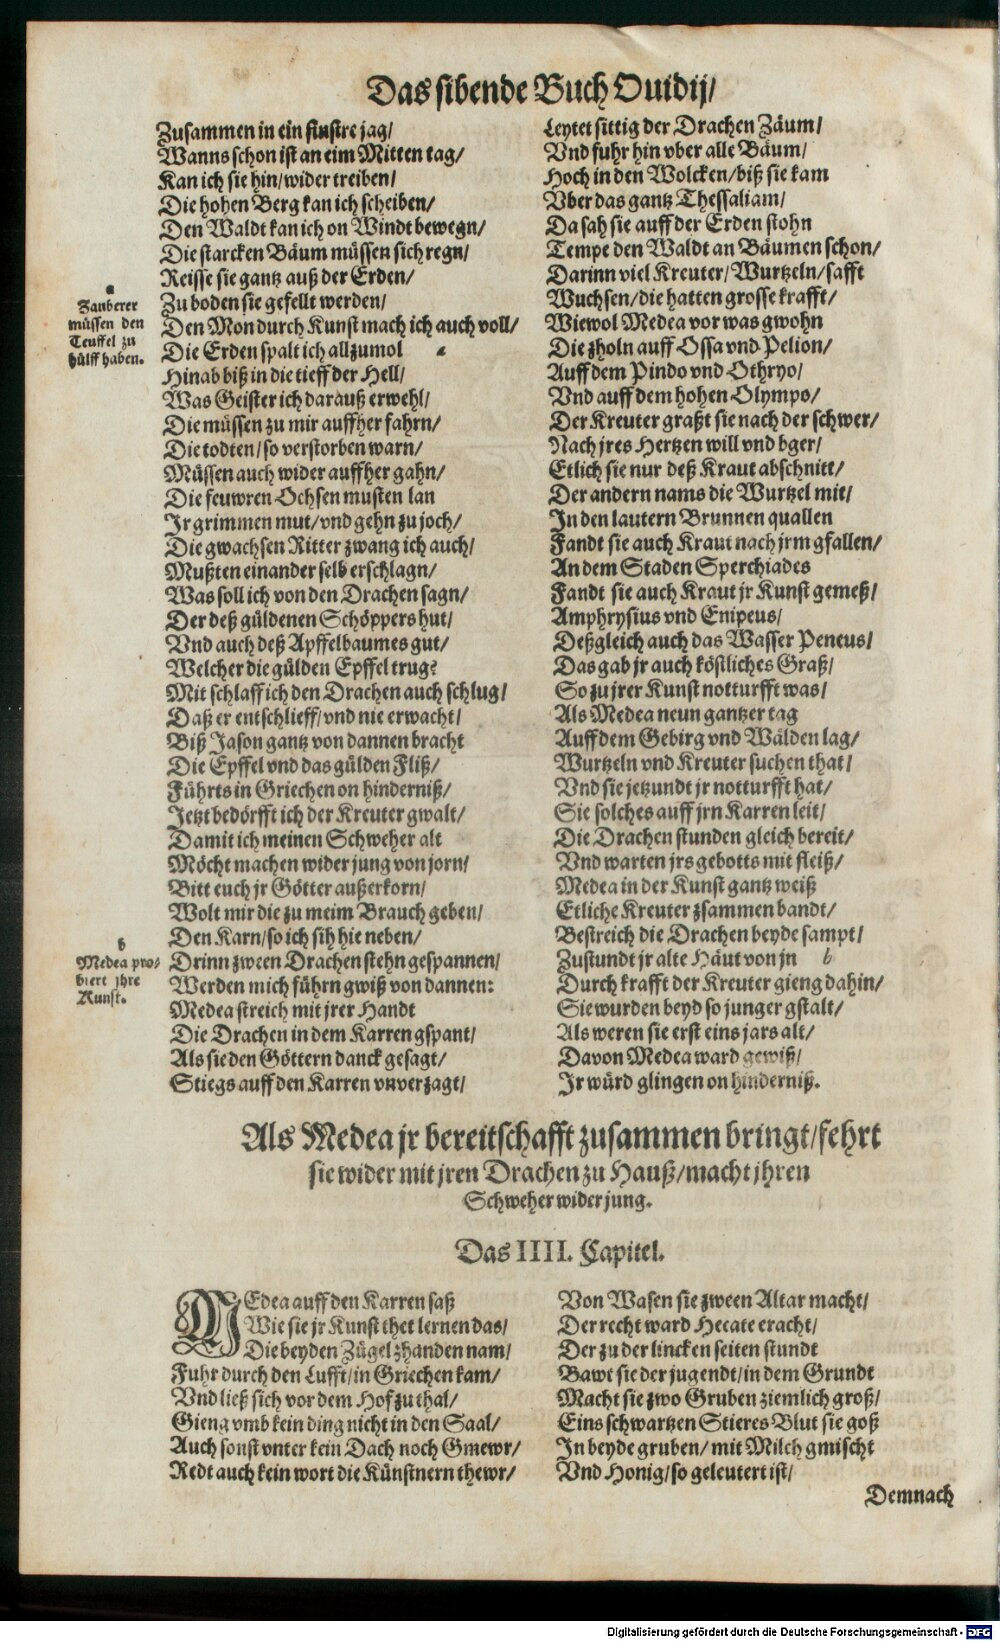 Das sibende Buch Ouidij/
Zusammen in ein finstre jag/
Wanns schon ist an eim Mitten tag/
Kan ich sie hin/wider treiben/
Die hohen Berg kan ich scheiben/
Den Waldt kan ich on Windt bewegn/
Die starcken Bäum müssen sich regn/
Reisse sie gantz auß der Erden/
Zu boden sie gefellt werden/
Den Mon durch Kunst mach ich auch voll/
Die Erden spalt ich allzumol a
Hinab biß in die tieff der Hell/
Was Geister ich darauß erwehl/
Die müssen zu mir auffher fahrn/
Die todten/so verstorben warn/
Müssen auch wider auffher gahn/
Die feuwren Ochsen musten lan
Jr grimmen mut/vnd gehn zu joch/
Die gwachsen Ritter zwang ich auch/
Mußten einander selb erschlagn/
Was soll ich von den Drachen sagn/
Der deß güldenen Schöppers hut/
Vnd auch deß Apffelbaumes gut/
Welcher die gülden Epffel trug?
Mit schlaff ich den Drachen auch schlug/
Daß er entschlieff/vnd nie erwacht/
Biß Jason gantz von dannen bracht
Die Epffel vnd das gülden Fliß/
Führts in Griechen on hinderniß/
Jetzt bedörfft ich der Kreuter gwalt/
Damit ich meinen Schweher alt
Möcht machen wider jung von jorn/
Bitt euch jr Götter außerkorn/
Wolt mir die zu meim Brauch geben/
Den Karn/so ich sih hie neben/
Drinn zween Drachen stehn gespannen/
Werden mich führn gwiß von dannen:
Medea streich mit jrer Handt
Die Drachen in dem Karren gspant/
Als sie den Göttern danck gesagt/
Stiegs auff den Karren vnverzagt/
a
Zauberer
müssen den
Teuffel zu
hülff haben.
b
Medea pro-
biert jhre
Kunst.
Leytet sittig der Drachen Zäum/
Vnd fuhr hin vber alle Bäum/
Hoch in den Wolcken/biß sie kam
Vber das gantz Thessaliam/
Da sah sie auff der Erden stohn
Tempe den Waldt an Bäumen schon/
Darinn viel Kreuter/Wurtzeln/safft
Wuchsen/die hatten grosse krafft/
Wiewol Medea vor was gwohn
Die zholn auff Ossa vnd Pelion/
Auff dem Pindo vnd Othryo/
Vnd auff dem hohen Olympo/
Der Kreuter graßt sie nach der schwer/
Nach jres Hertzen will vnd bger/
Etlich sie nur deß Kraut abschnitt/
Der andern nams die Wurtzel mit/
In den lautern Brunnen quallen
Fandt sie auch Kraut nach jrm gfallen/
An dem Staden Sperchiades
Fandt sie auch Kraut jr Kunst gemeß/
Amphrysius vnd Enipeus/
Deßgleich auch das Wasser Peneus/
Das gab jr auch köstliches Graß/
So zu jrer Kunst notturfft was/
Als Medea neun gantzer tag
Auff dem Gebirg vnd Wälden lag/
Wurtzeln vnd Kreuter suchen that/
Vnd sie jetzundt jr notturfft hat/
Sie solches auff jrn Karren leit/
Die Drachen stunden gleich bereit/
Vnd warten jrs gebotts mit fleiß/
Medea in der Kunst gantz weiß
Etliche Kreuter zsammen bandt/
Bestreich die Drachen beyde sampt/
Zustundt jr alte Häut von jn b
Durch krafft der Kreuter gieng dahin/
Sie wurden beyd so junger gstalt/
Als weren sie erst eins jars alt/
Davon Medea ward gewiß/
Jr würd glingen on hinderniß.
Als Medea jr bereitschafft zusammen bringt/fehrt
sie wider mit jren Drachen zu Hauß/macht jhren
Schweher wider jung.
Das IIII. Capitel.
MEdea auff den Karren saß
Wie sie jr Kunst thet lernen das/
Die beyden Zügel zhanden nam/
Fuhr durch den Lufft/in Griechen kam/
Vnd ließ sich vor dem Hof zu thal/
Gieng vmb kein ding nicht in den Saal/
Auch sonst vnter kein Dach noch Gmewr/
Redt auch kein wort die Künstnern thewr/
Von Wasen sie zween Altar macht/
Der recht ward Hecate eracht/
Der zu der lincken seiten stundt
Bawt sie der jugendt/in dem Grundt
Macht sie zwo Gruben ziemlich groß/
Eins schwartzen Stieres Blut sie goß
In beyde gruben/mit Milch gmischt
Vnd Honig/so geleutert ist/
Demnach
Digitalisierung gefördert durch die Deutsche Forschungsgemeinschaft - DFG